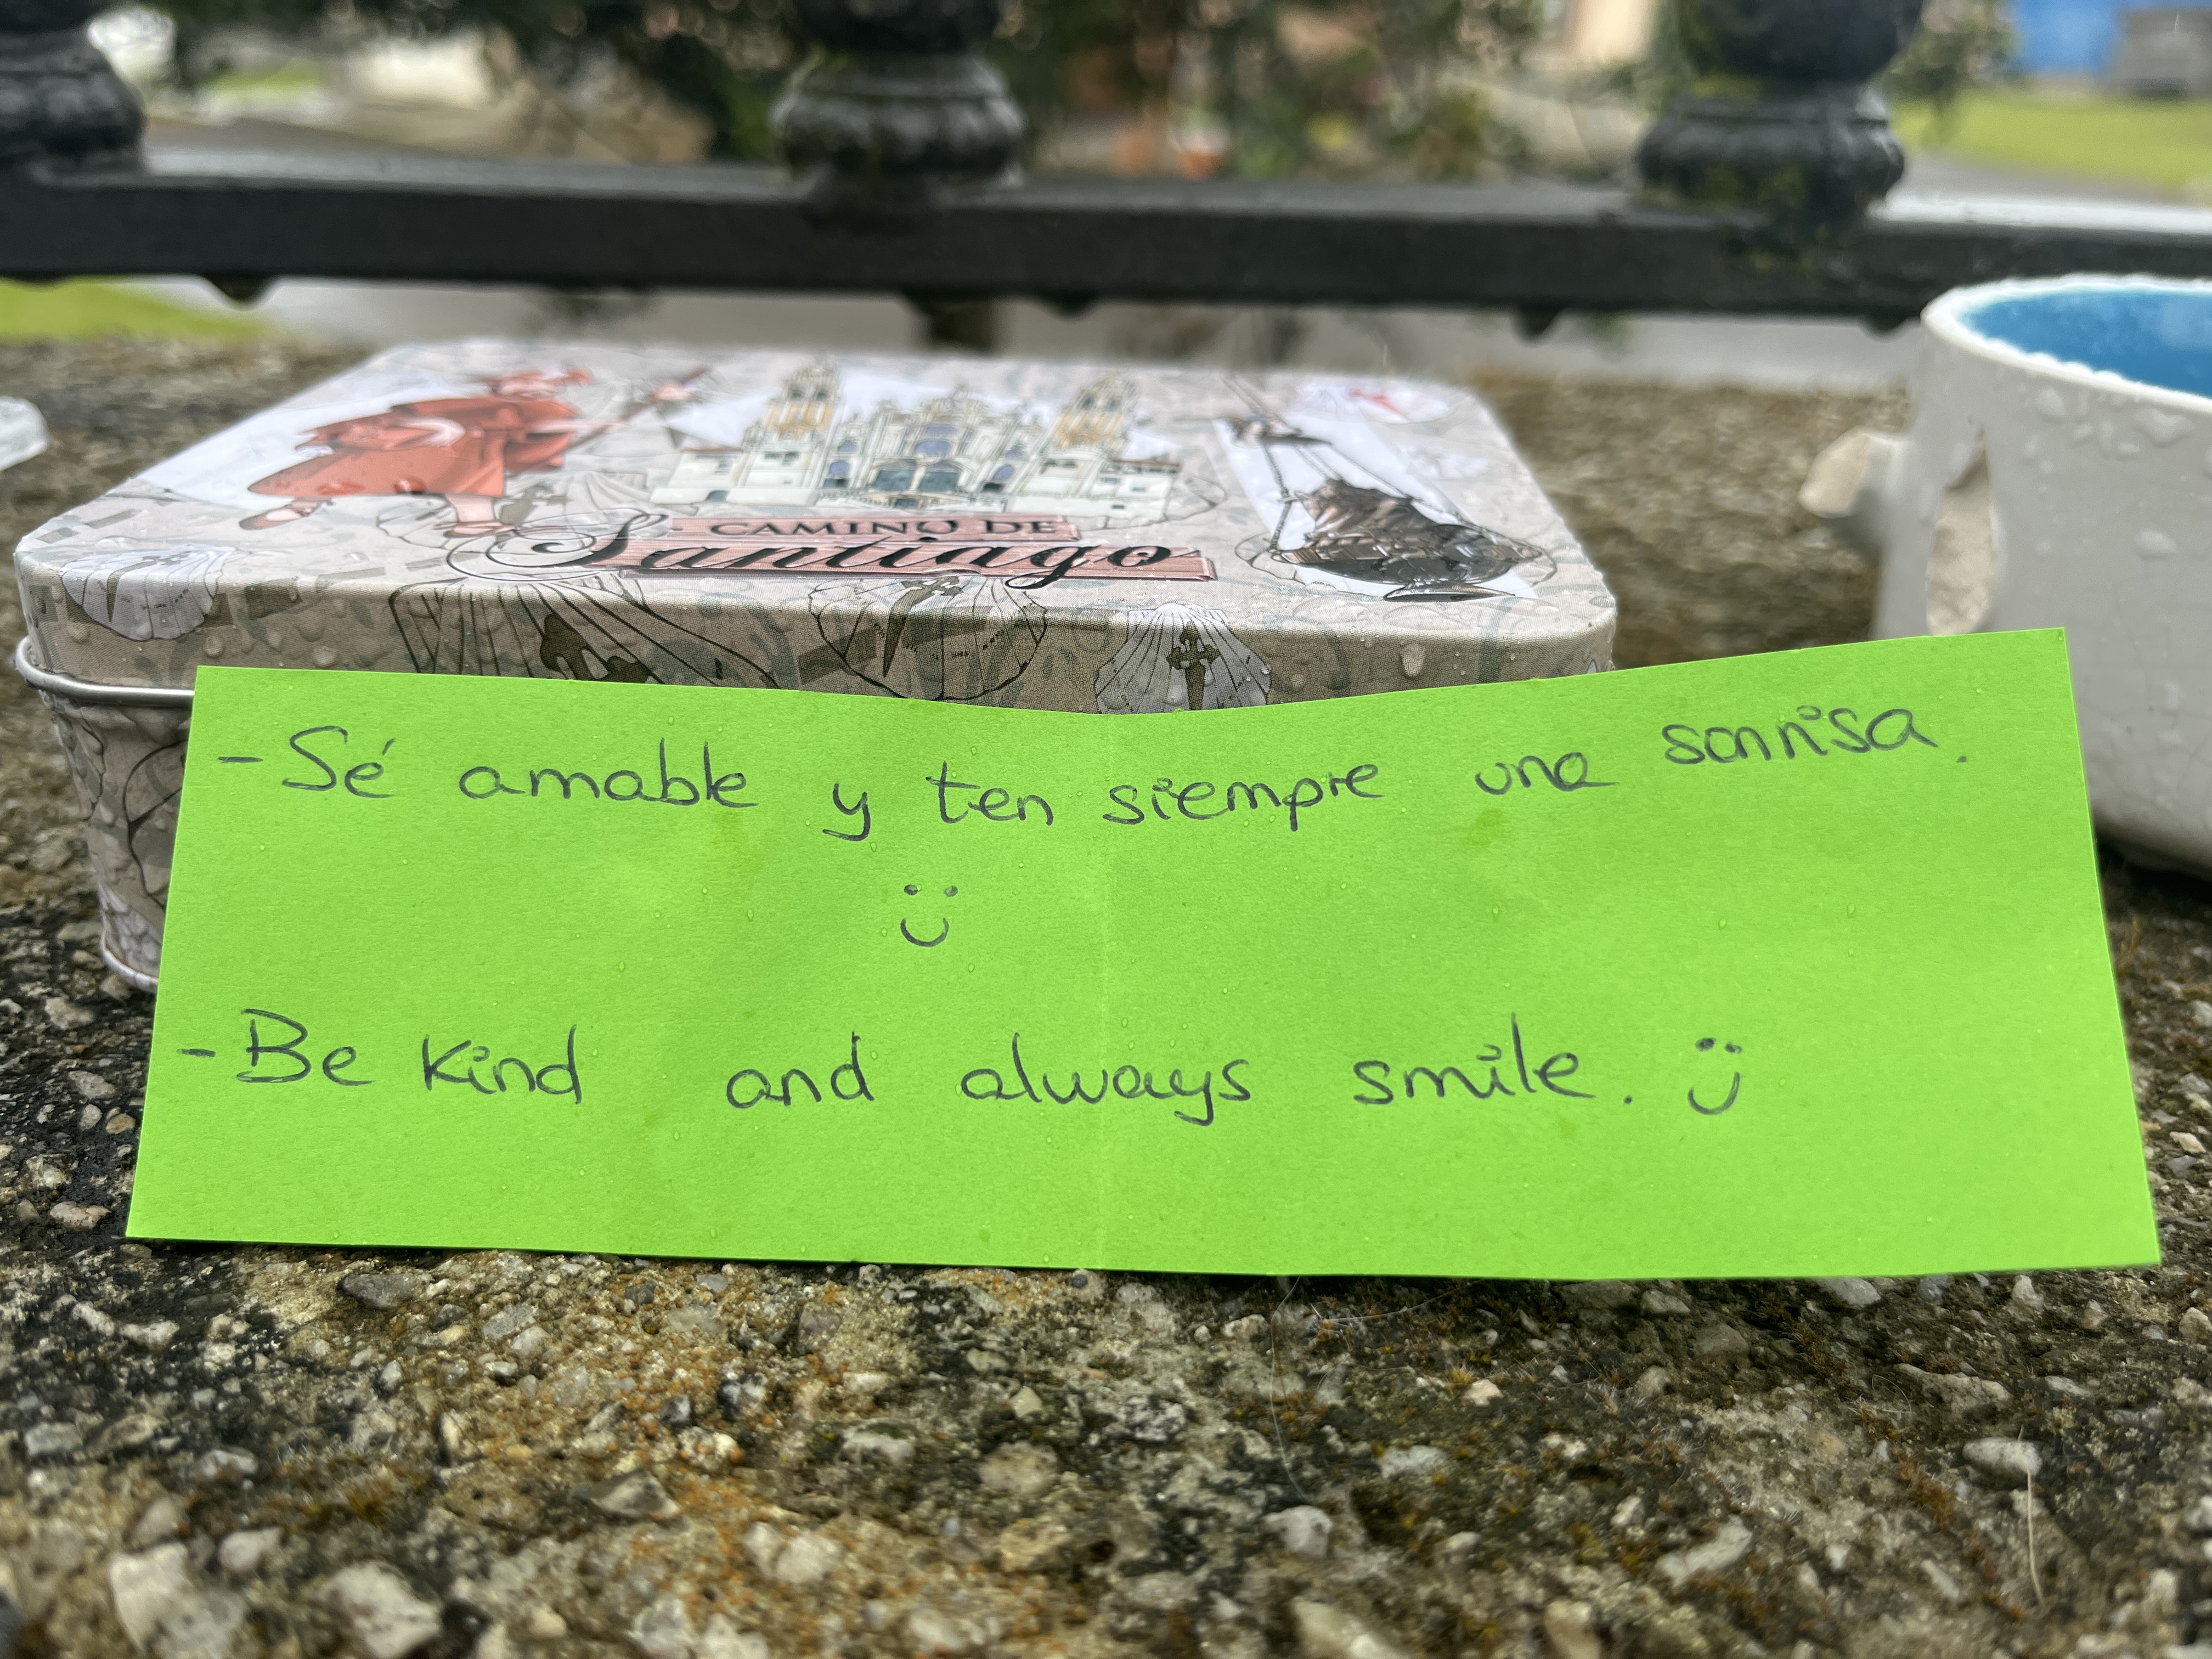 CAMINO DE
Santiago
- Sé amable y ten siempre una sonrisa.
- Be kind and always smile.